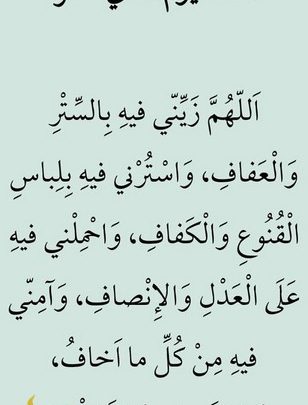 اَللّهُمَّ زَيِّنّي فيهِ بِالسِّتْرِ
وَالْعَفافِ، وَاسْتُرْني فيهِ بِلِباسِ
الْقُنُوعِ وَالْكَفافِ، وَاحْمِلْني فيهِ
عَلَى الْعَدْلِ وَالاِنْصافِ، وَآمِنّي
فيهِ مِنْ كُلِّ ما اَخافُ،